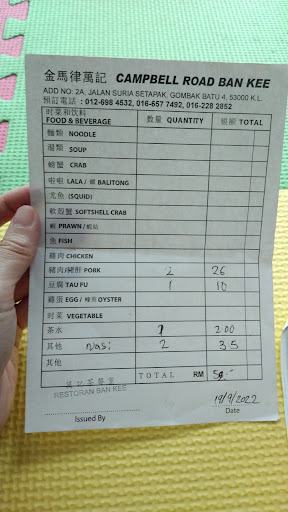 金馬律萬記 CAMPBELL ROAD BAN KEE
ADD NO: 2A, JALAN SURIA SETAPAK, GOMBAK BATU 4, 53000 K.L.
預訂電話 : 012-698 4532, 016-657 7492, 016-228 2852
时菜和饮料 數量 QUANTITY 銀額 TOTAL
FOOD & BEVERAGE
麵類 NOODLE
湯類 SOUP
螃蟹 CRAB
啦啦 LALA / 螺 BALITONG
尤魚 (SQUID)
軟殼蟹 SOFTSHELL CRAB
蝦 PRAWN / 蝦姑
鱼 FISH
雞肉 CHICKEN
豬肉/豬腳 PORK 2 26
豆腐 TAU FU 1 10
雞蛋 EGG / 蠔煎 OYSTER
时菜 VEGETABLE
茶水 1 2 00
其他 nasi 2 3 5
其他
TOTAL RM
萬記茶餐室
RESTORAN BAN KEE 19/9/2022
Issued By Date